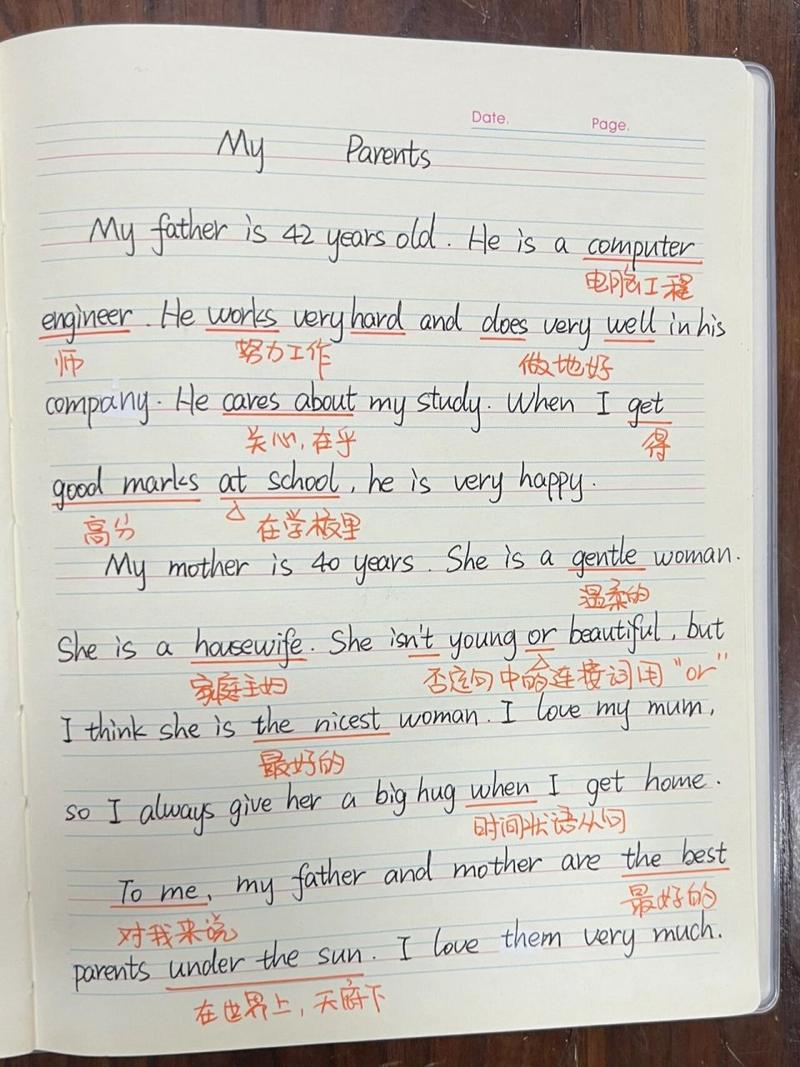 Date. Page.
My Parents
My father is 42 years old. He is a computer
电脑工程
engineer. He works very hard and does very well in his
师 努力工作 做地好
company. He cares about my study. When I get
关心,在乎 得
good marks at school, he is very happy.
高分 在学校里
My mother is 40 years. She is a gentle woman.
温柔的
She is a housewife. She isn't young or beautiful, but
家庭主妇 否定句中的连接词用"or"
I think she is the nicest woman. I love my mum,
最好的
so I always give her a big hug when I get home.
时间状语从句
To me, my father and mother are the best
对我来说 最好的
parents under the sun. I love them very much.
在世界上,天府下